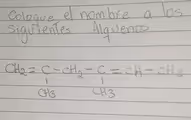 Coloque el nombre a los
siguientes Alquenos
CH2 = C - CH2 - C = CH - CH3
CH3 CH3